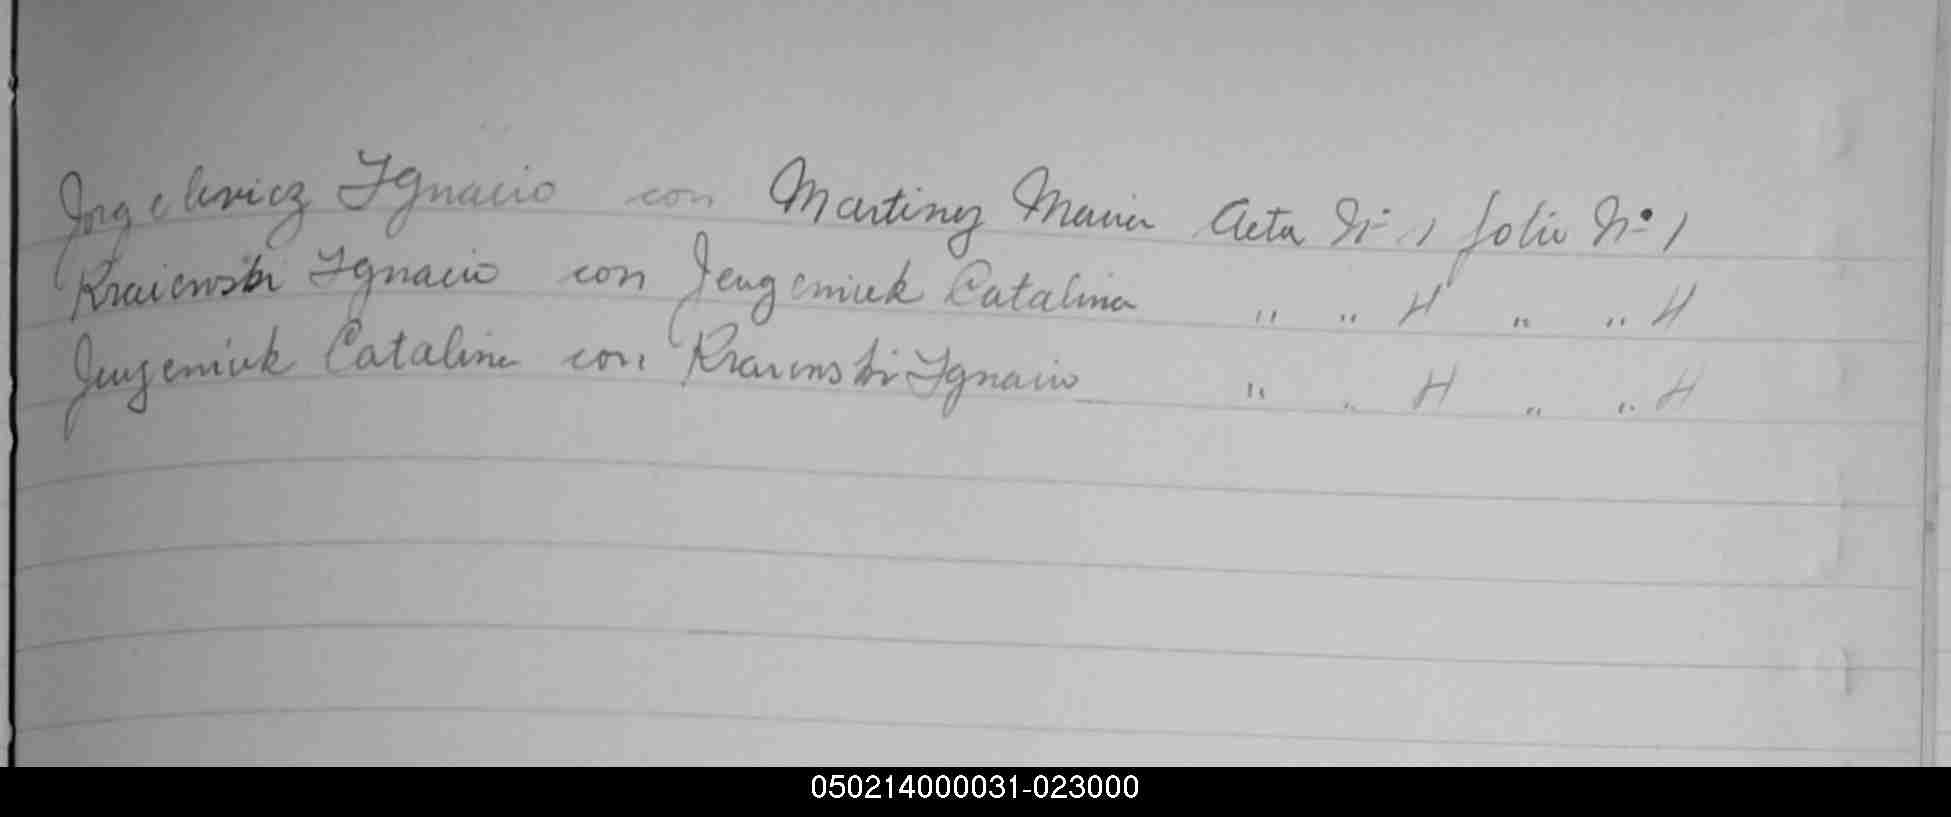 Jorgelevicz Ignacio con Martinez Maria Acta Nº 1 folio Nº 1
Kraiewski Ignacio con Jeugeniuk Catalina " " 4 " " 4
Jeugeniuk Catalina con Kraiewski Ignacio " " 4 " " 4
050214000031-023000